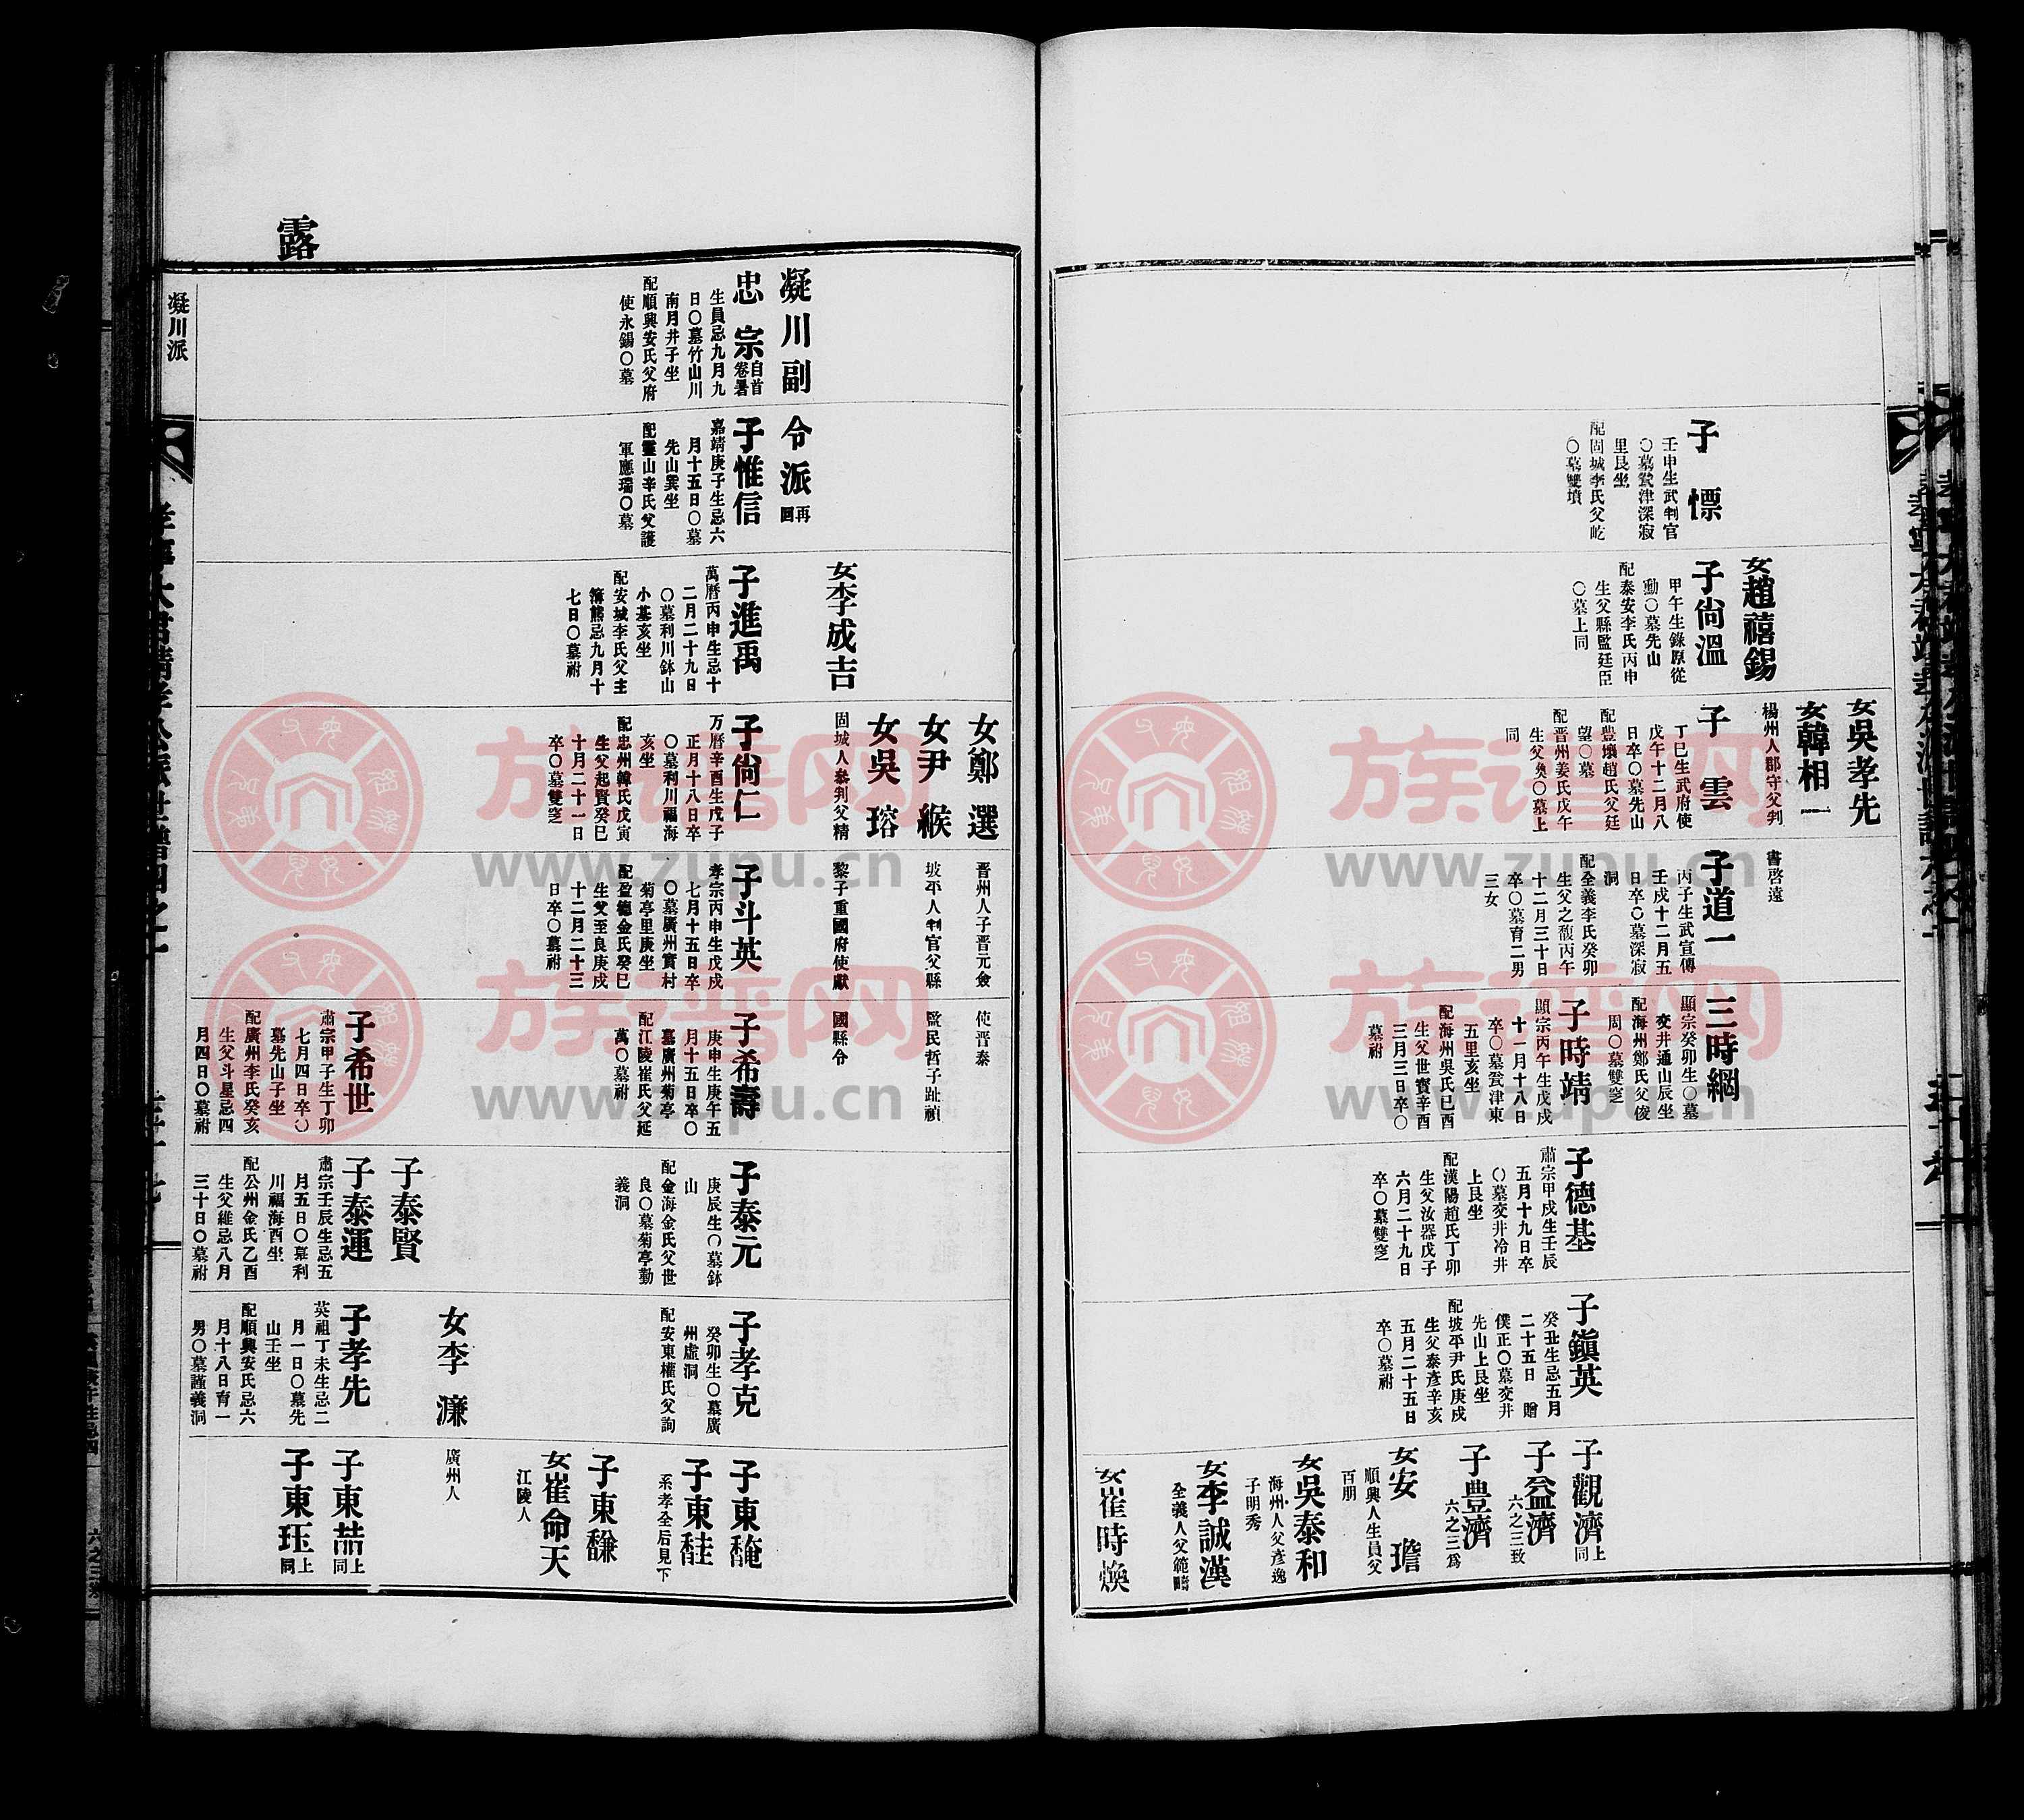 子 慓
壬申生武判官
○墓甕津深寂
里艮坐
配固城李氏父屹
○墓雙墳
女趙禧錫
子尙溫
甲午生錄原從
勳○墓先山
配泰安李氏丙申
生父縣監廷臣
○墓上同
女吳孝先
女韓相一
楊州人郡守父判
子 雲
丁巳生武府使
戊午十二月八
日卒○墓先山
配豊壤趙氏父廷
望○墓
配晋州姜氏戊午
生父奐○墓上
同
書啓遠
子道一
丙子生武宣傳
壬戌十二月五
日卒○墓深寂
洞
配全義李氏癸卯
生父之馥丙午
十二月三十日
卒○墓育二男
三女
三時綱
顯宗癸卯生○墓
交井通山辰坐
配海州鄭氏父俊
周○墓雙窆
子時靖
顯宗丙午生戊戌
十一月十八日
卒○墓甕津東
五里亥坐
配海州吳氏巳酉
生父世賓辛酉
三月三日卒○
墓祔
子德基
肅宗甲戌生壬辰
五月十九日卒
○墓交井冷井
上艮坐
配漢陽趙氏丁卯
生父汝器戊子
六月二十九日
卒○墓雙窆
子鎭英
癸丑生忌五月
二十五日 贈
僕正○墓交井
先山上艮坐
配坡平尹氏庚戌
生父泰彥辛亥
五月二十五日
卒○墓祔
子觀濟上同
子益濟
六之三致
子豊濟
六之三爲
女安 瑨
順興人生員父
百朋
女吳泰和
海州人父彥逸
子明秀
女李誠漢
全義人父範疇
女崔時煥
露
凝川副
忠 宗自首卷暑
生員忌九月九
日○墓竹山川
南月井子坐
配順興安氏父府
使永錫○墓
令派再回
子惟信
嘉靖庚子生忌六
月十五日○墓
先山巽坐
配靈山辛氏父護
軍應瑞○墓
女李成吉
子進禹
萬曆丙申生忌十
二月二十九日
○墓利川鉢山
小基亥坐
配安城李氏父主
簿熊忌九月十
七日○墓祔
女鄭 選
女尹 緱
女吳 瑢
固城人叅判父精
子尙仁
万曆辛酉生戊子
正月十八日卒
○墓利川福海
亥坐
配忠州韓氏戊寅
生父起賢癸巳
十月二十一日
卒○墓雙窆
晋州人子晋元僉
坡平人判官父縣
黎子重國府使獻
子斗英
孝宗丙申生戊戌
七月十五日卒
○墓廣州實村
菊亭里庚坐
配盈德金氏癸巳
生父至良庚戌
十二月二十三
日卒○墓祔
使晋泰
監民哲子趾禎
國縣令
子希壽
庚申生庚午五
月十五日卒○
墓廣州菊亭
配江陵崔氏父延
萬○墓祔
子希世
肅宗甲子生丁卯
七月四日卒○
墓先山子坐
配廣州李氏癸亥
生父斗星忌四
月四日○墓祔
子泰元
庚辰生○墓鉢
山
配金海金氏父世
良○墓菊亭勤
義洞
子泰賢
子泰運
肅宗壬辰生忌五
月五日○墓利
川福海酉坐
配公州金氏乙酉
生父維忌八月
三十日○墓祔
子孝克
癸卯生○墓廣
州虛洞
配安東權氏父詢
女李 濂
子孝先
英祖丁未生忌二
月一日○墓先
山壬坐
配順興安氏忌六
月十八日育一
男○墓謹義洞
子東馣
子東䭲
系孝全后見下
子東馦
女崔命天
江陵人
廣州人
子東喆上同
子東珏上同
凝川派